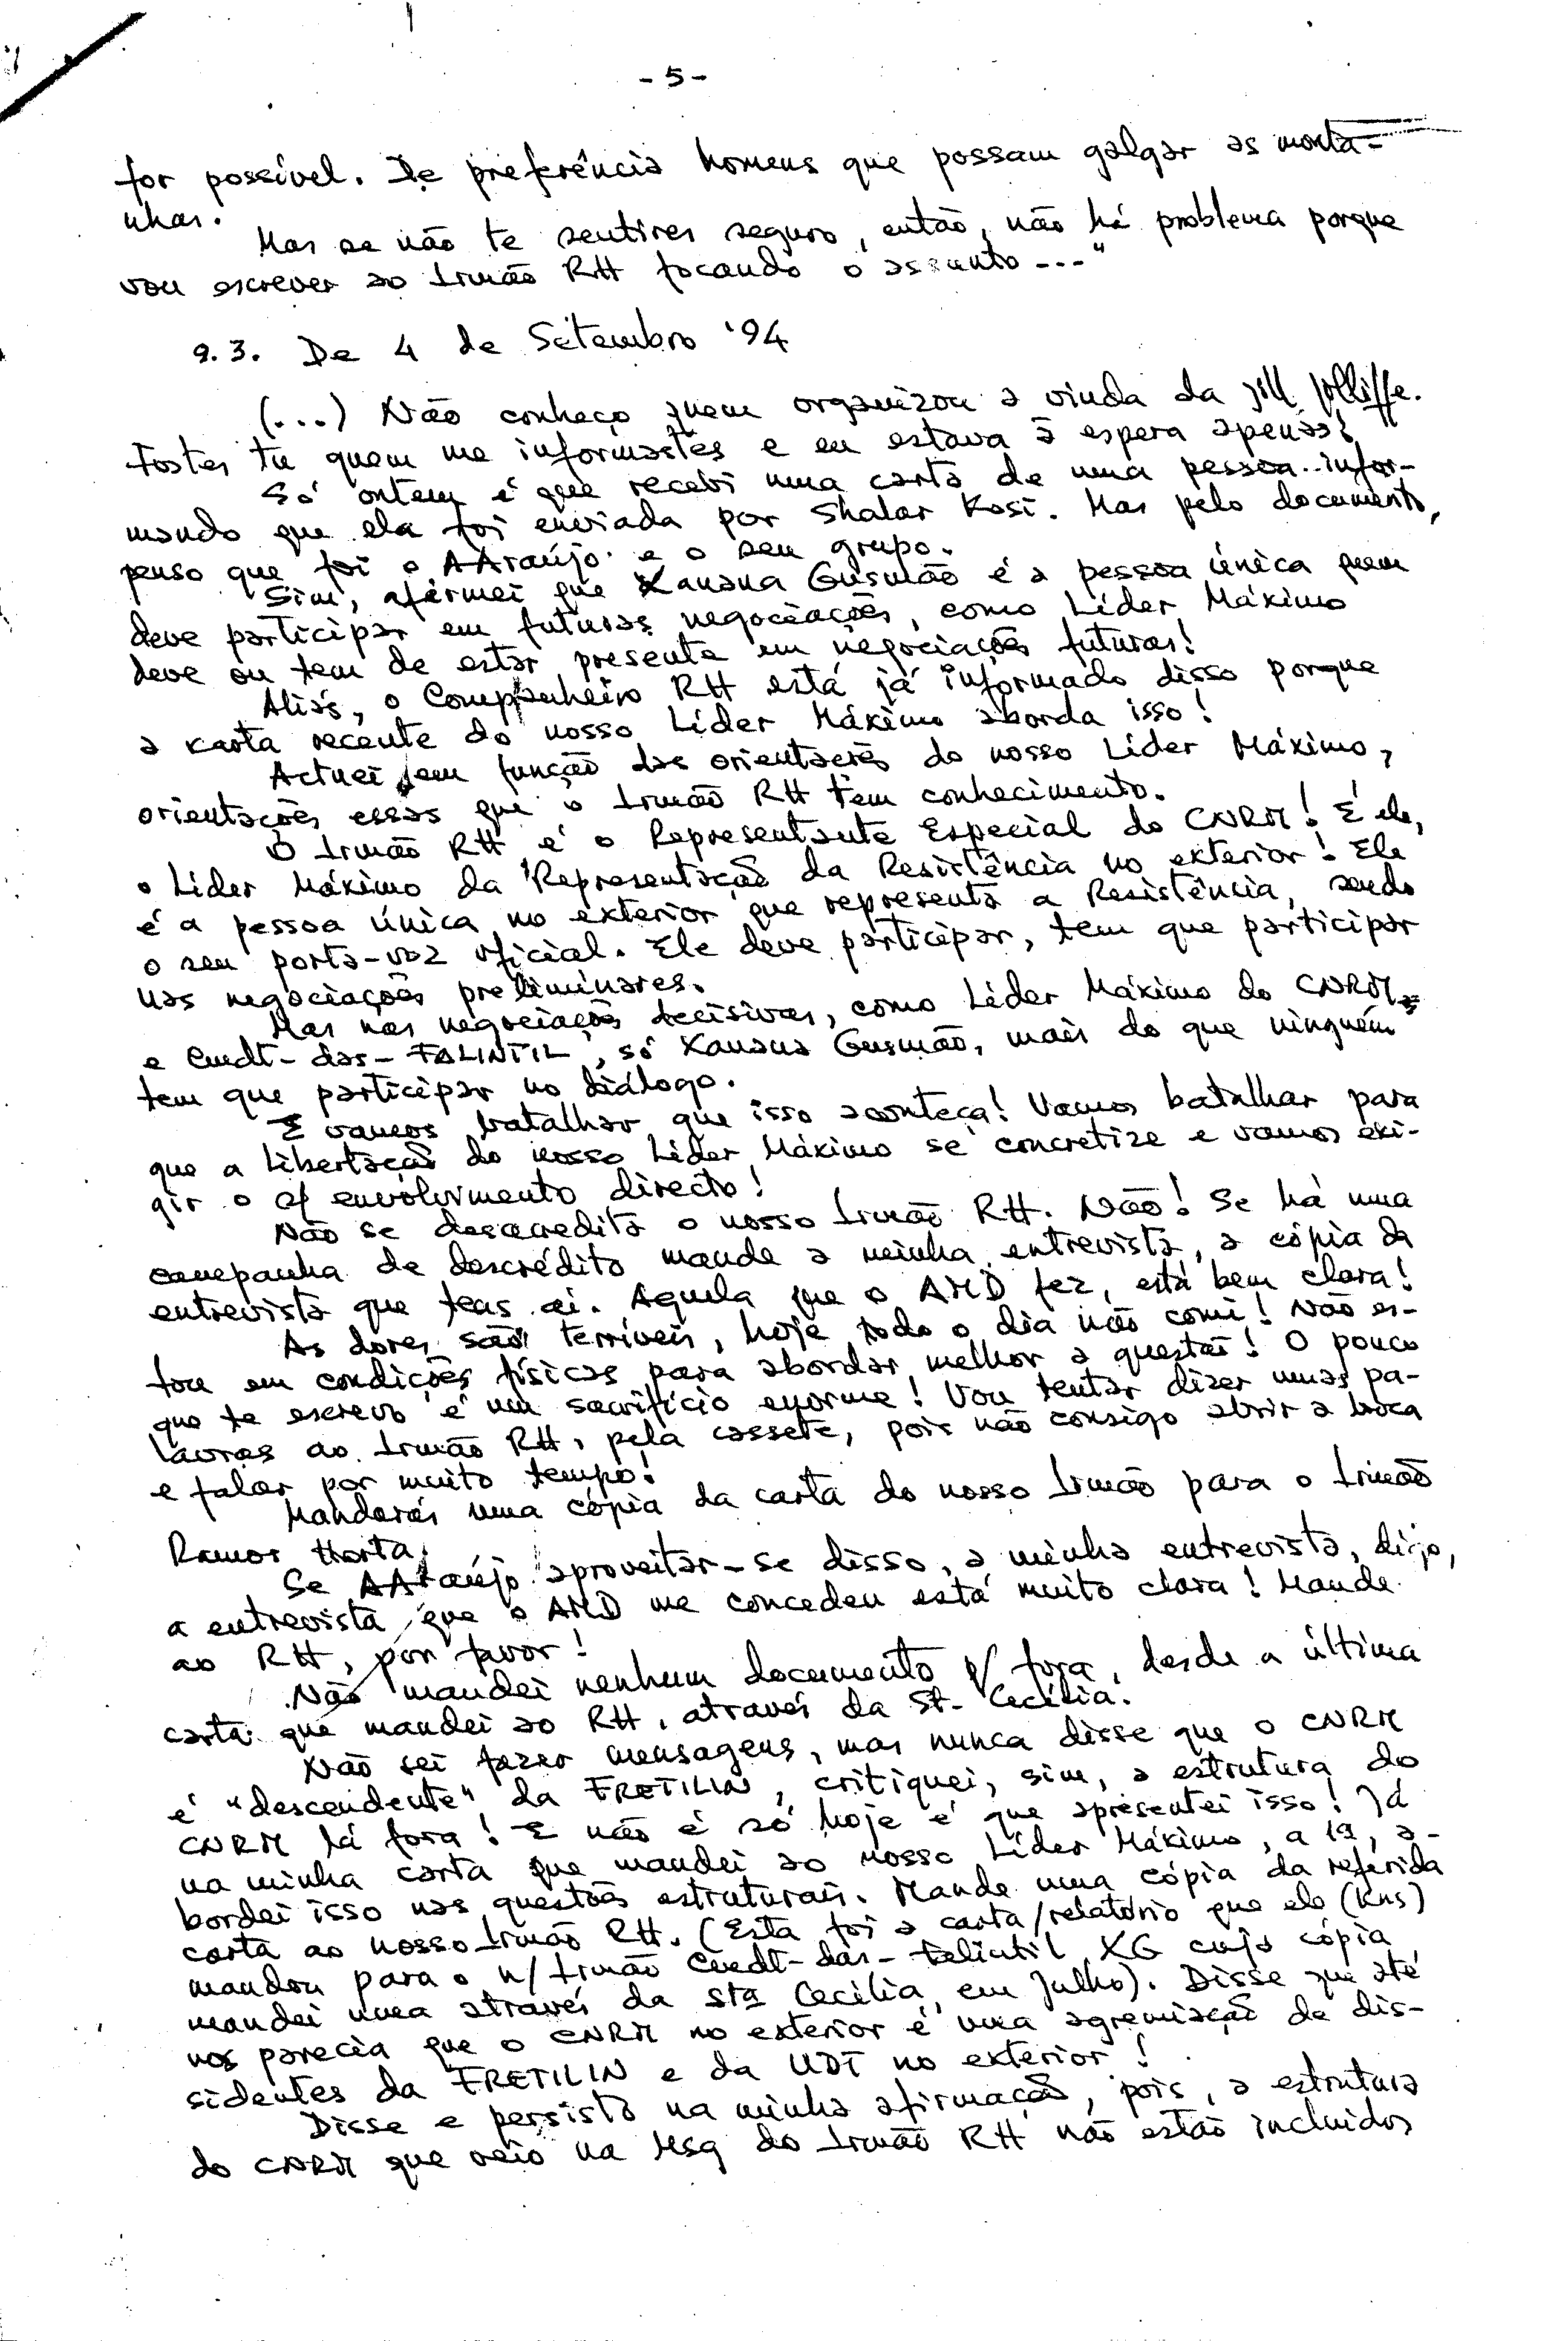 - 5 -
for possível. De preferência homens que possam galgar as monta-
nhas.
Mas se não te sentires seguro, então, não há problema porque
vou escrever ao Irmão RH focando o assunto ---"
9.3. De 4 de Setembro '94
(...) Não conheço quem organizou a vinda da Jill Jolliffe.
Fostes tu quem me informastes e eu estava à espera apenas!
Só ontem é que recebi uma carta de uma pessoa infor-
mando que ela foi enviada por Shalar Kosi. Mas pelo documento,
penso que foi o AAraújo e o seu grupo.
Sim, afirmei que Xanana Gusmão é a pessoa única quem
deve participar em futuras negociações, como Líder Máximo
deve ou tem de estar presente em negociações futuras!
Aliás, o Companheiro RH está já informado disso porque
a karta recente do nosso Líder Máximo aborda isso!
Actuei em função das orientações do nosso Líder Máximo,
orientações essas que o Irmão RH tem conhecimento.
O Irmão RH é o Representante Especial do CNRM! É ele,
o Líder Máximo da Representação da Resistência no exterior! Ele
é a pessoa única no exterior que representa a Resistência, sendo
o seu porta-voz oficial. Ele deve participar, tem que participar
nas negociações preliminares.
Mas nas negociações decisivas, como Líder Máximo do CNRM
e Cmdt-das-FALINTIL, só Xanana Gusmão, mais do que ninguém
tem que participar no diálogo.
E vamos batalhar que isso aconteça! Vamos batalhar para
que a libertação do nosso Líder Máximo se concretize e vamos exi-
gir o s/ envolvimento directo!
Não se desacredita o nosso Irmão RH. Não! Se há uma
campanha de descrédito mande a minha entrevista, a cópia da
entrevista que teas aí. Aquela que o AMD fez, está bem clara!
As dores são terríveis, hoje todo o dia não comi! Não es-
tou em condições físicas para abordar melhor a questão! O pouco
que te escrevo é um sacrifício enorme! Vou tentar dizer umas pa-
lavras ao Irmão RH, pela cassete, pois não consigo abrir a boca
e falar por muito tempo!
Mandarás uma cópia da carta do nosso Irmão para o Irmão
Ramos Horta.
Se AAraújo aproveitar-se disso, a minha entrevista, digo,
a entrevista que o AMD me concedeu está muito clara! Mande
ao RH, por favor!
Não mandei nenhum documento p/ fora, desde a última
carta que mandei ao RH, através da St- Cecília.
Não sei fazer mensagens, mas nunca disse que o CNRM
é "descendente" da FRETILIN, critiquei, sim, a estrutura do
CNRM lá fora! E não é só hoje é que apresentei isso! Já
na minha carta que mandei ao nosso Líder Máximo, a 1ª, a-
bordei isso nas questões estruturais. Mande uma cópia da referida
carta ao nosso Irmão RH. (Esta foi a carta/relatório que ele (Kns)
mandou para o n/ Irmão Cmdt-das-Falintil XG cuja cópia
mandei uma através da Stª Cecília, em Julho). Disse que até
nos parecia que o CNRM no exterior é uma agremiação de dis-
sidentes da FRETILIN e da UDT no exterior!
Disse e persisto na minha afirmação, pois, a estrutura
do CNRM que veio na Msg do Irmão RH não estão incluidos